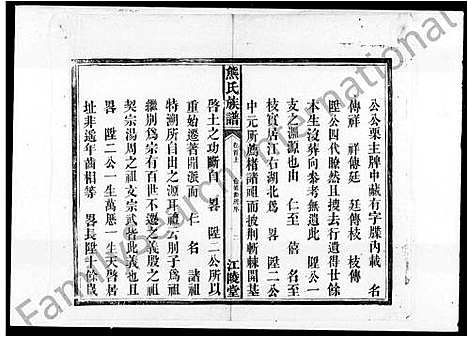 公公栗主牌中藏有字牒內載 名
傳祥 祥傳廷 廷傳枝 枝傳
陞公四代瞭然且披去行遺得廿餘
木生沒葬向參考無遺此 陞公一
支之淵源也由 仁至 啓 名至
枝實居江右湖北爲 畧 陞二公
中元所薦楮諸祖而披荆斬棘開基
熊氏族譜
卷首上
江陵堂
啓土之功斷自 畧 陞二公所以
重始遷者別灑派而 仁 名 諸祖
特溯所自出之源耳禮云別子爲祖
繼別爲宗有百世不遷之義殷之祖
契宗湯周之祖文宗武皆此義也且
畧 陞二公一生萬歷一生 啓居
址非遠年齒相等 畧長陞十餘歲
FamilySearch International